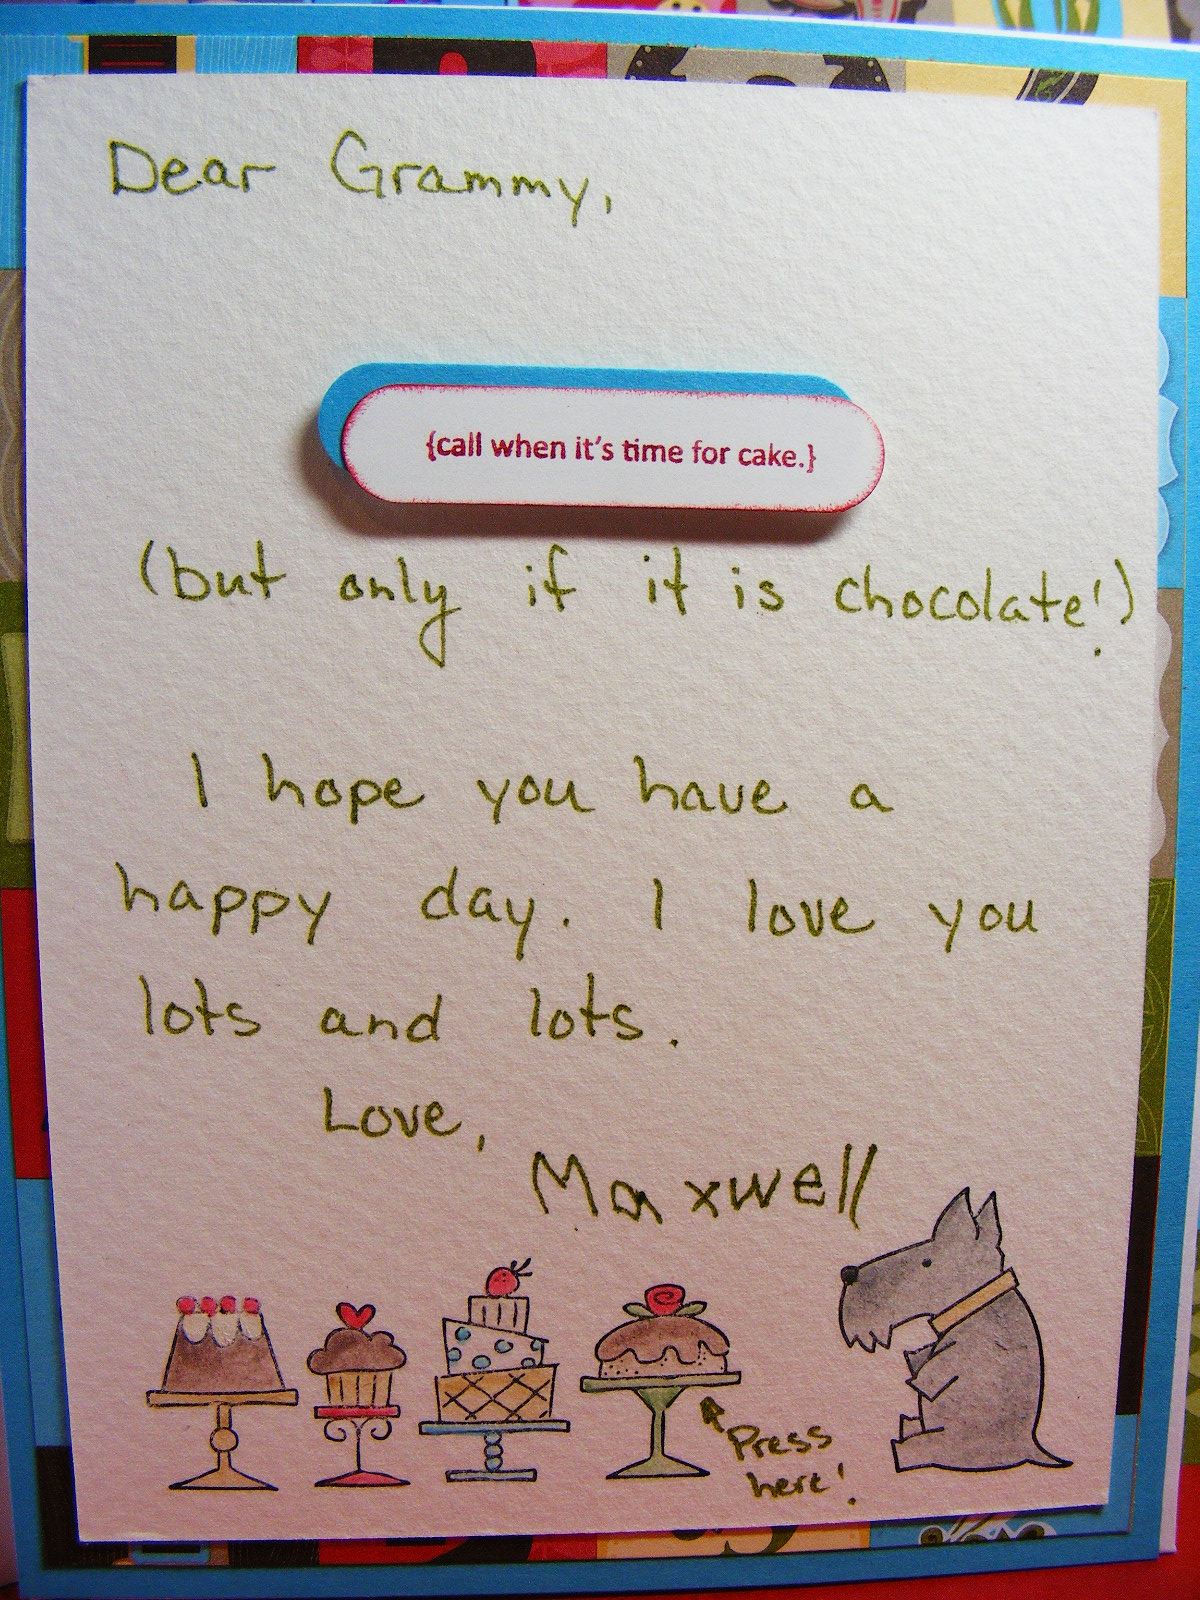 Dear Grammy,
{call when it's time for cake.}
(but only if it is chocolate!)
I hope you have a
happy day. I love you
lots and lots.
Love,
Maxwell
Press
here!